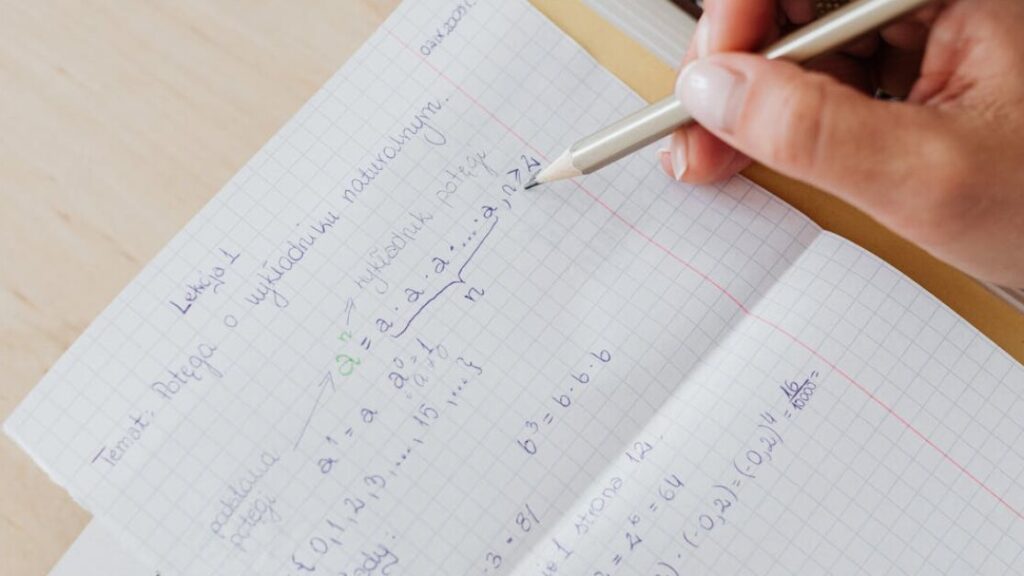 Lekcja 1
Temat: Potęga o wykładniku naturalnym.
wykładnik potęgi
aⁿ = a · a · a · ... · a , n ≥ 2
n
podstawa
potęgi
a¹ = a a⁰ = 1
{0, 1, 2, 3, ..., 15, ...}
b³ = b · b · b
· 3 = 81
1 strona 12.
= 2⁶ = 64
· (-0,2) = (-0,2)⁴ = 16/10000 =